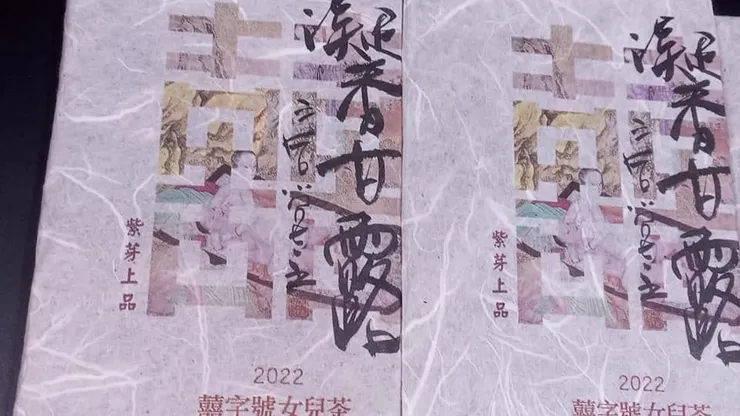 凝香甘露
紫芽上品
2022
囍字號女兒茶
凝香甘露
紫芽上品
2022
囍字號女兒茶